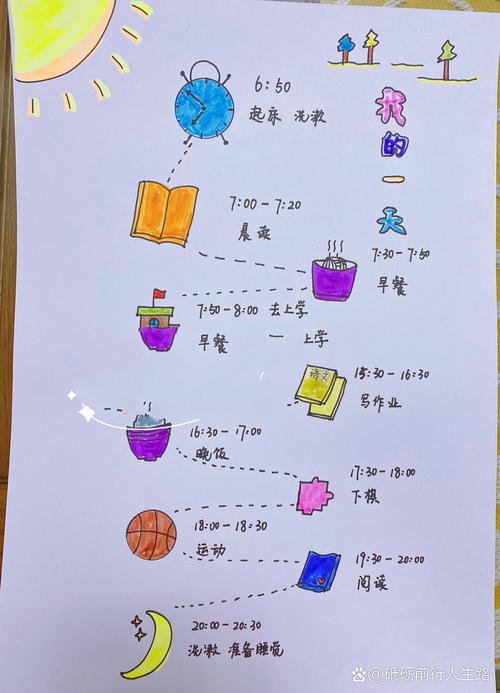 我的一天
6:50
起床 洗漱
7:00-7:20
晨读
7:30-7:50
早餐
7:50-8:00 去上学
早餐 一 上学
语文
15:30-16:30
写作业
16:30-17:00
晚饭
17:30-18:00
下棋
18:00-18:30
运动
19:30-20:00
阅读
20:00-20:30
洗漱 准备睡觉
@砥砺前行人生路